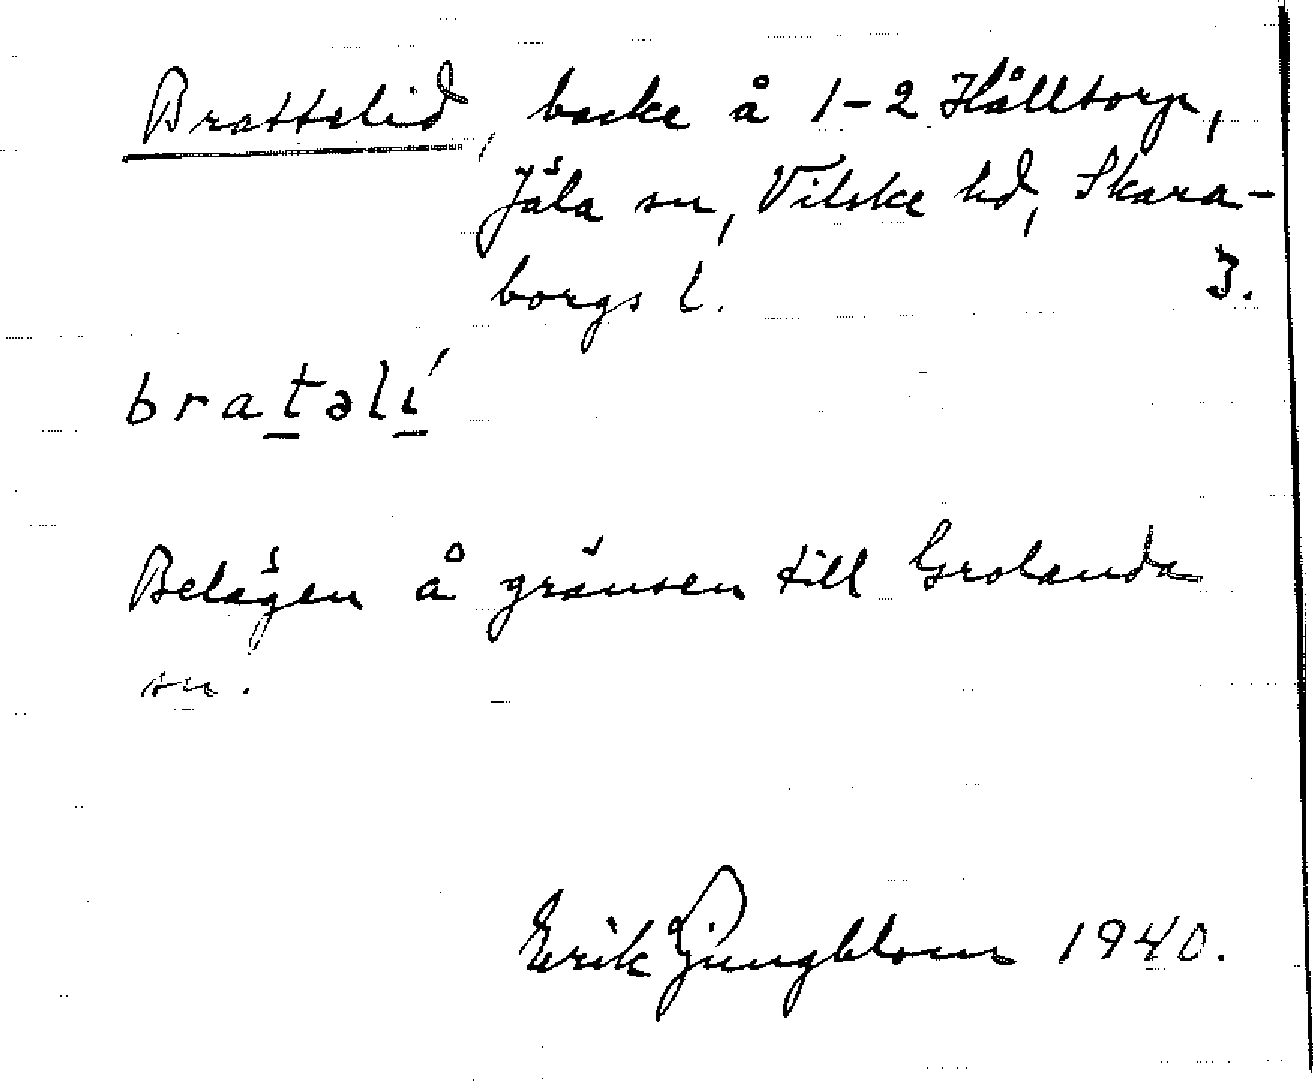 Brattelid, backe å 1-2 Hålltorp,
Jäla sn, Vilske hd, Skara-
borgs l. 3.
bratəlí
Belägen å gränsen till Grolanda
sn.
Erik Ljungblom 1940.